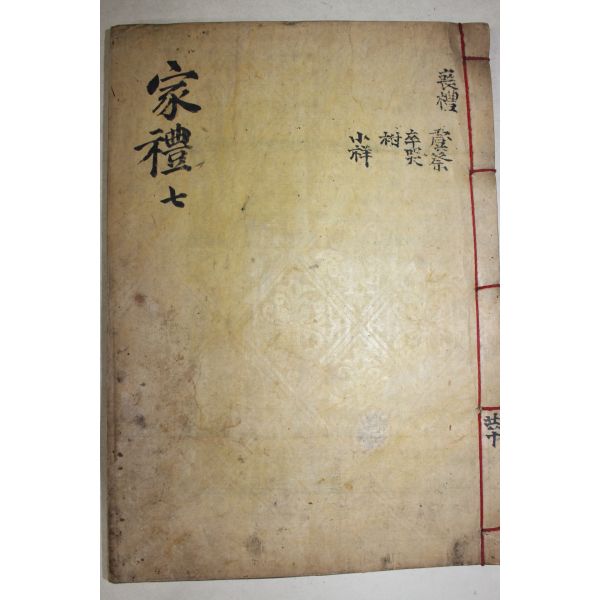 家禮 七
喪禮
虞祭
卒哭
祔
小祥
共十